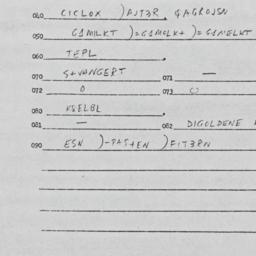 040 CICLOX )AJT3R, GAGROJSN
050 G1MILKT )=G1MOLK+ )=G1MELKT
060 TEPL
070 S+VANGERT 071 —
072 0 073 0
080 K8ELBL
081 — 082 DIGOLDENE
090 ESN )-PAS+EN )FIT3RN